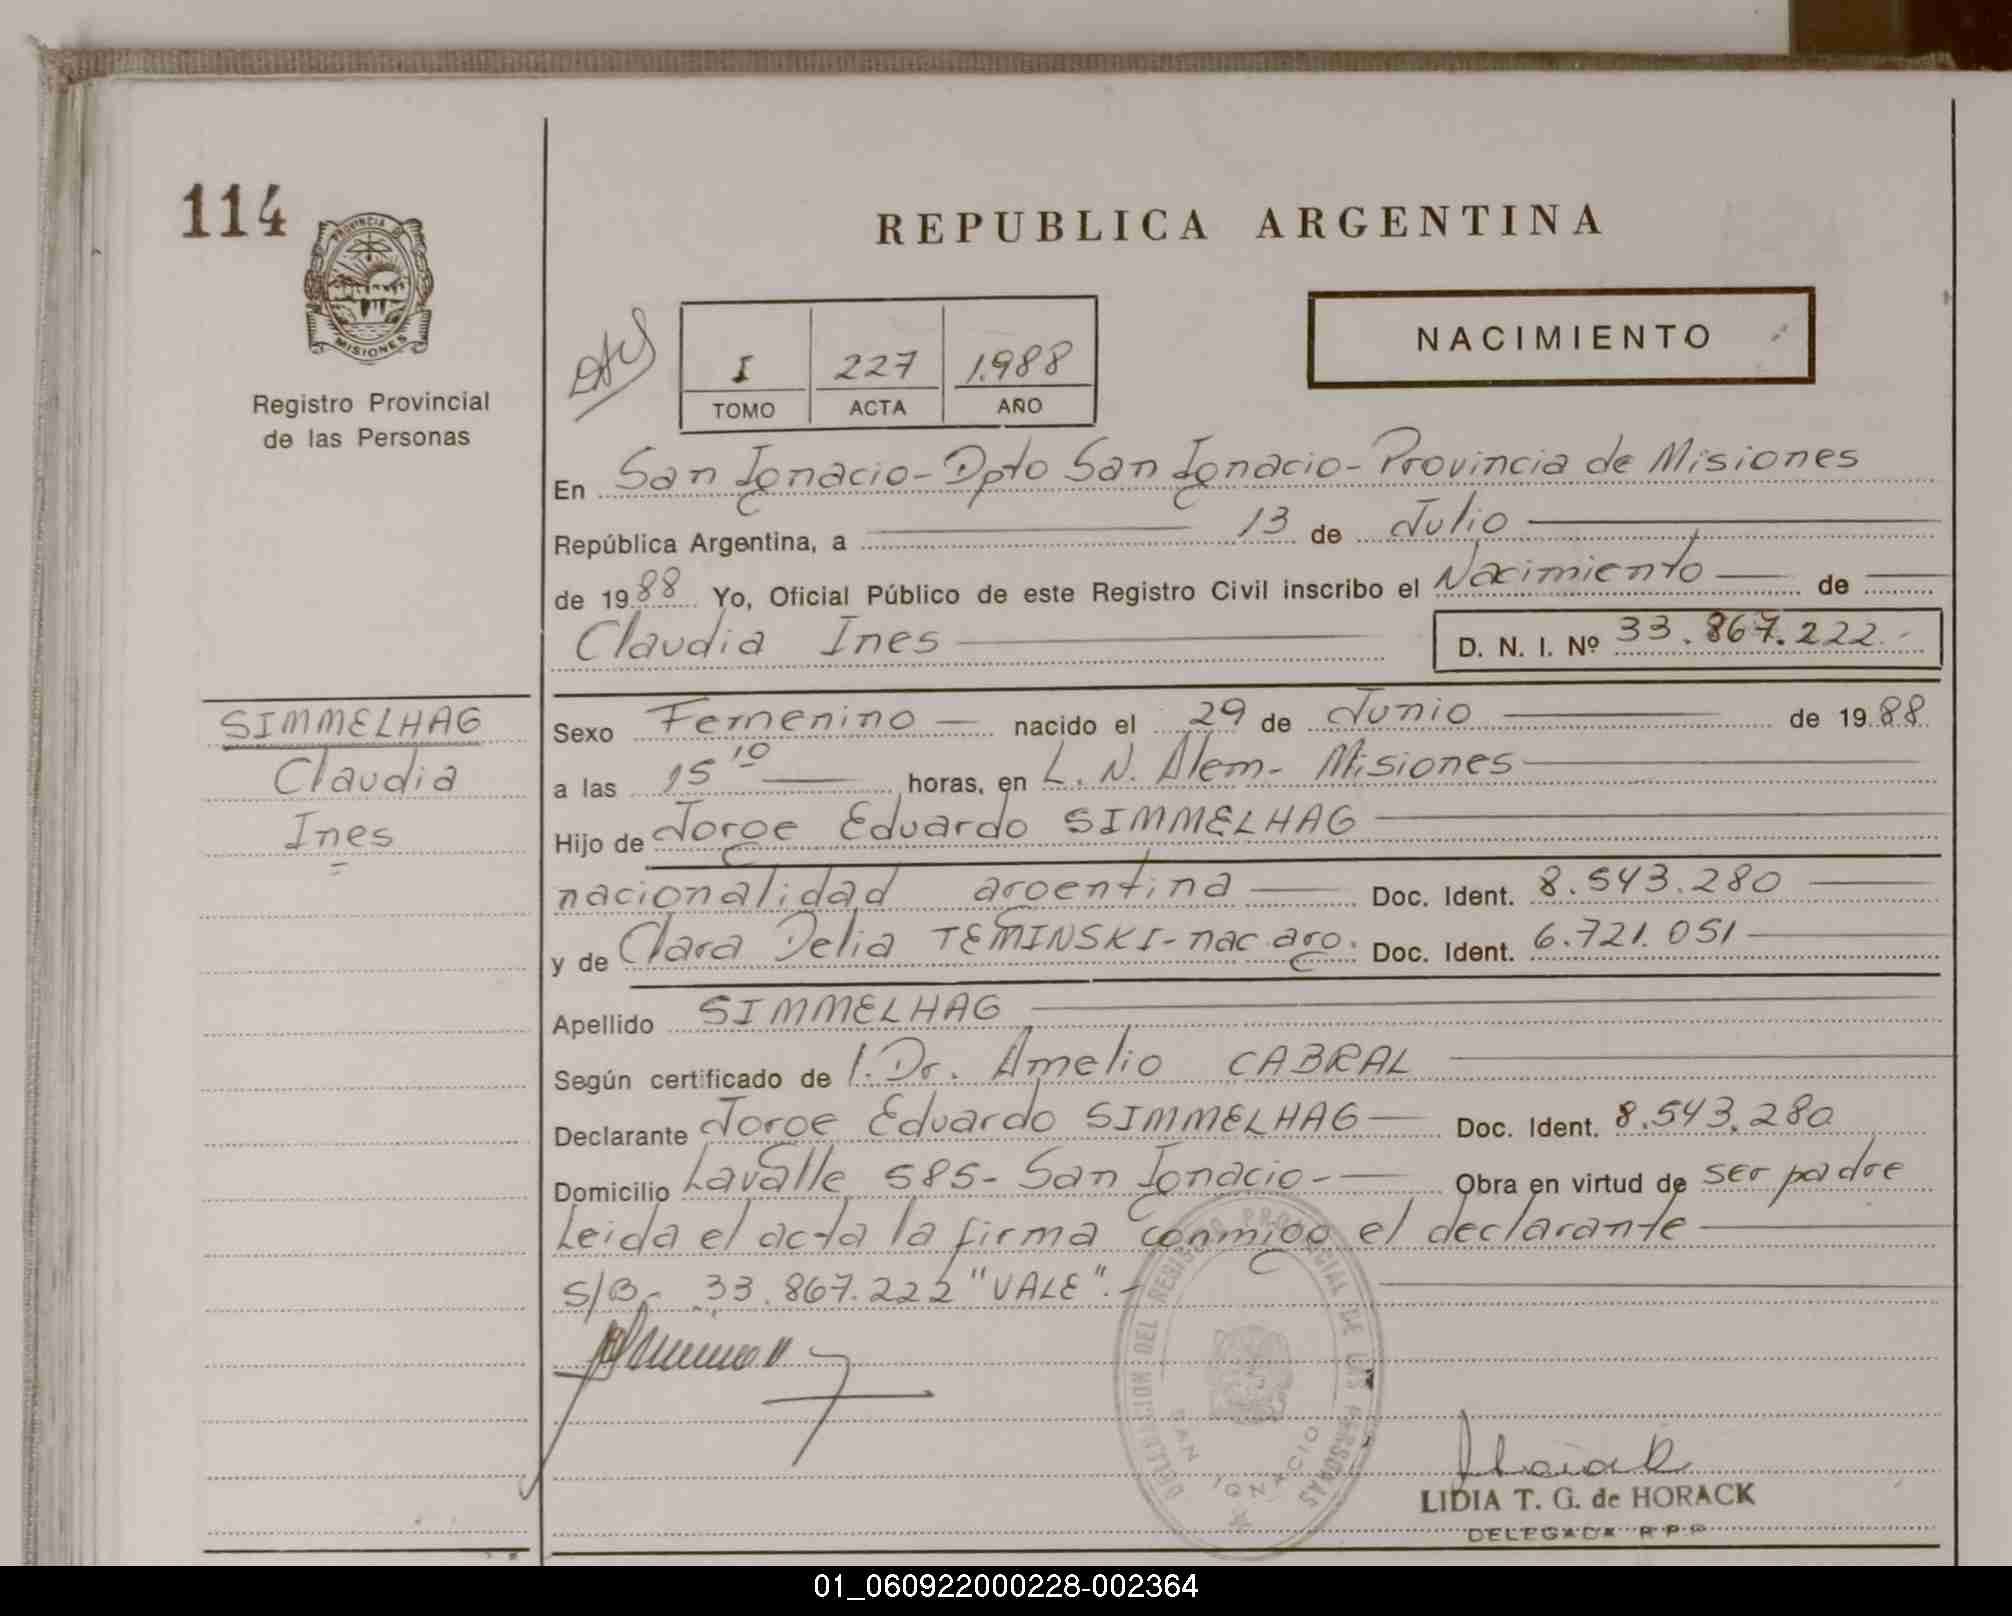 114
PROVINCIA D
MISIONES
Registro Provincial
de las Personas
REPUBLICA ARGENTINA
I 227 1.988
TOMO ACTA AÑO
NACIMIENTO
En San Ignacio - Dpto San Ignacio - Provincia de Misiones
República Argentina, a 13 de Julio
de 1988 Yo, Oficial Público de este Registro Civil inscribo el Nacimiento de
Claudia Ines D. N. I. Nº 33.867.222.-
SIMMELHAG
Claudia
Ines
Sexo Femenino nacido el 29 de Junio de 1988
a las 15 10 horas, en L. N. Alem - Misiones
Hijo de Jorge Eduardo SIMMELHAG
nacionalidad argentina Doc. Ident. 8.543.280
y de Clara Delia TEMINSKI - nac arg. Doc. Ident. 6.721.051
Apellido SIMMELHAG
Según certificado de 1. Dr. Amelio CABRAL
Declarante Jorge Eduardo SIMMELHAG Doc. Ident. 8.543.280
Domicilio Lavalle 585 - San Ignacio - Obra en virtud de ser padre
Leida el acta la firma conmigo el declarante
S/B - 33.867.222 "VALE".-
DELEGACION DEL REGISTRO PROVINCIAL DE LAS PERSONAS
SAN IGNACIO
LIDIA T. G. de HORACK
DELEGADA R P P
01_060922000228-002364